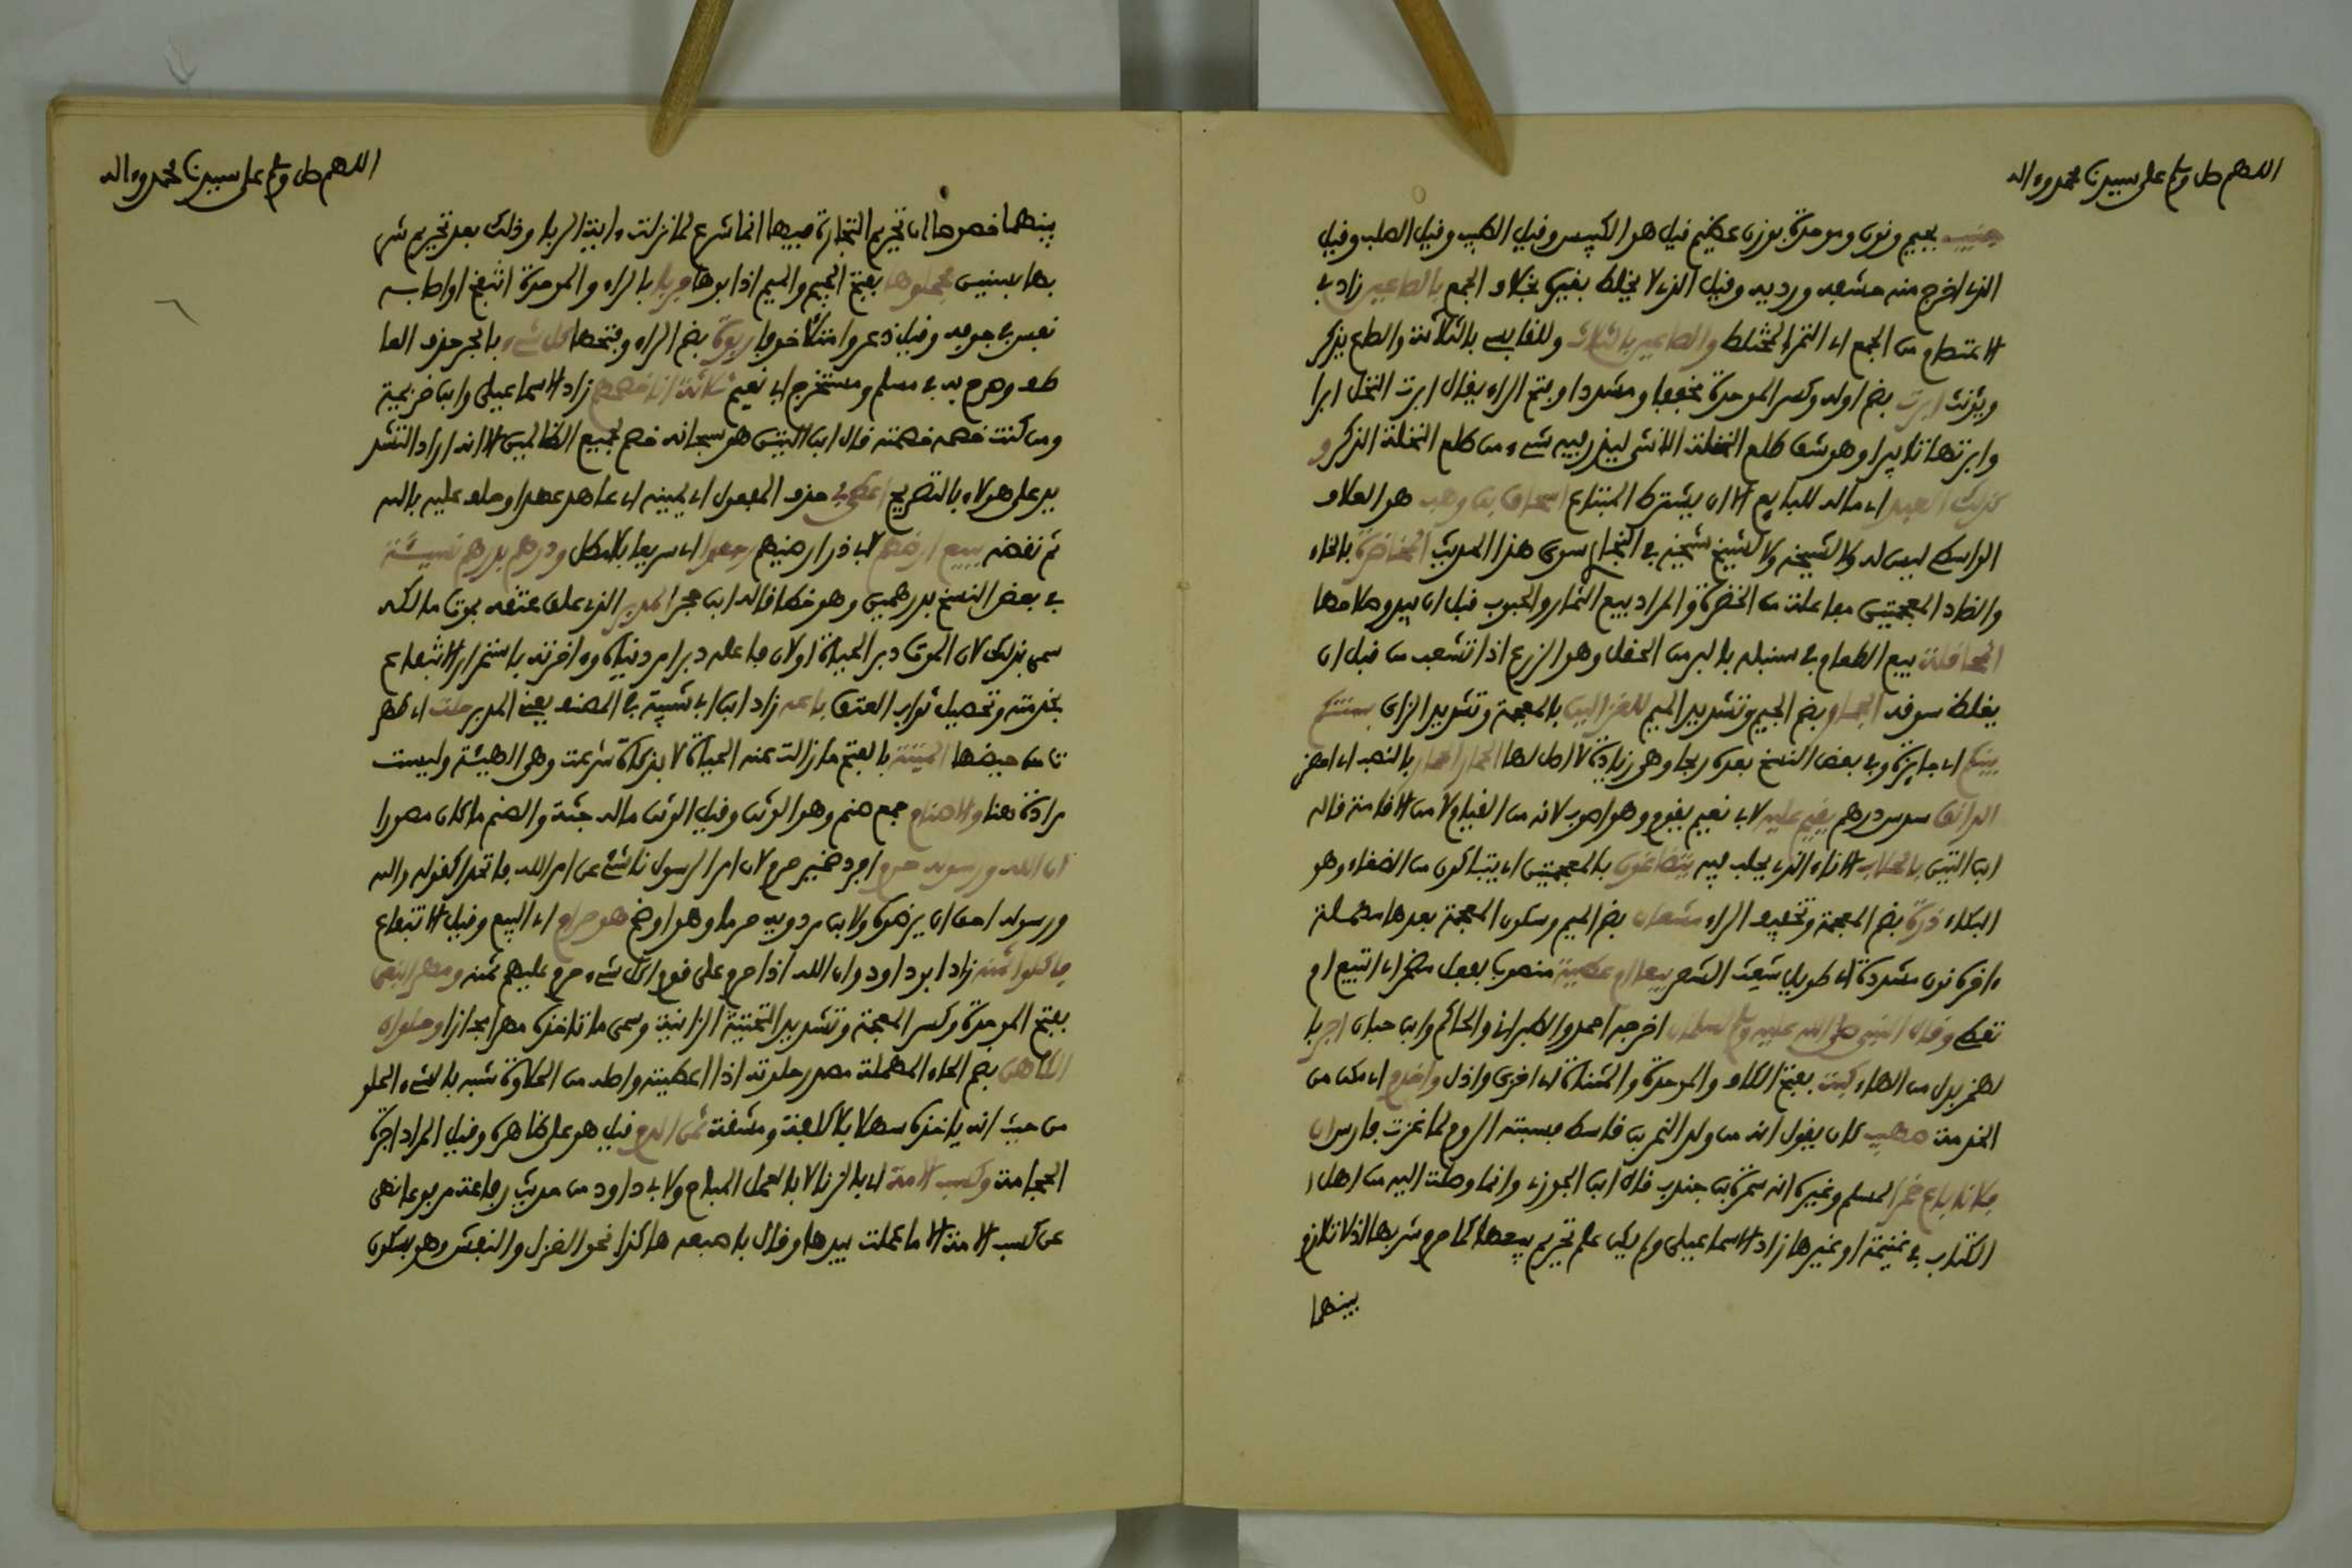 اللهم صل وسلم على سيدنا محمد وءاله
جنيب بجيم ونون وموحدة بوزن عظيم قيل هو الكبيس وقيل الطيب وقيل الصلب وقيل
الذي اخرج منه حشفه ورديه وقيل الذي لا يخلط بغيره بخلاف الجمع بالصاعين زاد في
الاعتصام من الجمع اي التمر المختلط والصاعين بالثلاث وللقابسي بالثلاثة والصاع يذكر
ويؤنث ابرت بضم اوله وكسر الموحدة مخففا ومشددا وبفتح الراء يقال ابرت النخل ابرا
وابرتها تابيرا وهو شق طلع النخلة الانثى ليذر فيه شيء من طلع النخلة الذكر و
كذلك العبد اي ماله للبايع الا ان يشترط المبتاع اسحاق بن وهب هو العلاف
الواسطي ليس له ولا لشيخه ولا لشيخ شيخه في البخاري سوى هذا الحديث المخاضرة بالخاء
والضاد المعجمتين مفاعلة من الخضرة والمراد بيع الثمار والحبوب قبل ان يبدو صلاحها
المحاقلة بيع الطعام في سنبله بالبر من الحقل وهو الزرع اذا تشعب من قبل ان
يغلظ سوقه الجمار بضم الجيم وتشديد الميم للغزالين بالمعجمة وتشديد الزاي سنتكم
بينكم اي جايزة وفي بعض النسخ بعده ربحا وهي زيادة لا اصل لها الحمار الحمار بالنصب اي احضر
الدانق سدس درهم يقيم عليه لابي نعيم يقوم وهو اصوب لانه من القيام لا من الاقامة قاله
ابن التين بالحلاب الاناء الذي يحلب فيه يتضاغون بالمعجمتين اي يتباكون من الضغاء وهو
البكاء ذرة بضم المعجمة وتخفيف الراء مشعان بضم الميم وسكون المعجمة بعدها مهملة
ءاخره نون مشددة اي طويل شعث الشعر بيعا ام عطية منصوب بفعل مضمر اي اتبيع ام
تعطي وقال النبي صلى الله عليه وسلم لسلمان اخرجه احمد والطبراني والحاكم وابن حبان اجر با
لهمز بدل من الهاء كبت بفتح الكاف والموحدة والمثناة اي اخزى واذل واخدم اي مكن من
الخدمة صهيب كان يقول انه من ولد النمر بن قاسط فسبته الروم لما غزت فارس ان
فلانا باع خمرا لمسلم وغيره انه سمرة بن جندب قال ابن الجوزي وانما وصلت اليه من اهل ا
لكتاب في غنيمة او غيرها زاد الاسماعيلي ولم يكن علم تحريم بيعها كما حرم شربها اذ لا تلازم
بينهما
اللهم صل وسلم على سيدنا محمد وءاله
بينهما خصوصا ان تحريم التجارة فيها انما شرع لما نزلت ءاية الربا وذلك بعد تحريم شر
بها بسنين فجملوها بفتح الجيم والميم اذابوها فربا بالراء والموحدة انتفخ او اصابه
نفس في جوفه وقيل ذعر وامتلا خوفا ربوة بضم الراء وفتحها كل شيء بالجر حذف العا
طف وصرح به في مسلم ومستخرج ابي نعيم ثلاثة انا خصمهم زاد الاسماعيلي وابن خزيمة
ومن كنت خصمه خصمته قال ابن التين هو سبحانه خصم لجميع الظالمين الا انه اراد التشد
يد على هؤلاء بالتصريح اعطى بي حذف المفعول اي يمينه اي عاهد عهدا وحلف عليه بالله
ثم نقضه ببيع ارضهم لابي ذر ارضيهم رجعوا اي سريعا بلا مطل ودرهم بدرهم نسيئة
في بعض النسخ بدرهمين وهو خطا قاله ابن حجر المدبر الذي علق عتقه بموت مالكه
سمي بذلك لان الموت دبر الحياة او لان فاعله دبر امر دنياه وءاخرته باستمرار الانتفاع
بخدمته وتحصيل ثواب العتق باعه زاد ابن ابي شيبة في المصنف يعني المدبر حلت اي طهر
ت من حيضها الميتة بالفتح ما زالت عنه الحياة لا بذكاة شرعت وهي الهيئة وليست
مرادة هنا والاصنام جمع صنم وهو الوثن وقيل الوثن ما له جثة والصنم ما كان مصورا
ان الله ورسوله حرم افرد ضمير حرم لان امر الرسول ناشئ عن امر الله فاتحدا كقوله والله
ورسوله احق ان يرضوه ولابن مردويه حرما وهو اوضح هو حرام اي البيع وقيل الانتفاع
فاكلوا ثمنه زاد ابو داود وان الله اذا حرم على قوم اكل شيء حرم عليهم ثمنه ومهر البغي
بفتح الموحدة وكسر المعجمة وتشديد التحتية الزانية وسمي ما تاخذه مهرا مجازا وحلوان
الكاهن بضم الحاء المهملة مصدر حلوته اذا اعطيته واصله من الحلاوة شبه بالشيء الحلو
من حيث انه ياخذه سهلا بلا كلفة ومشقة ثمن الدم قيل هو على ظاهره وقيل المراد اجرة
الحجامة وكسب الامة اي بالزنا لا بالعمل المباح ولابي داود من حديث رفاعة مرفوعا نهى
عن كسب الامة الا ما عملت بيدها وقال باصبعه هاكذا نحو الغزل والنفش وهو بسكون